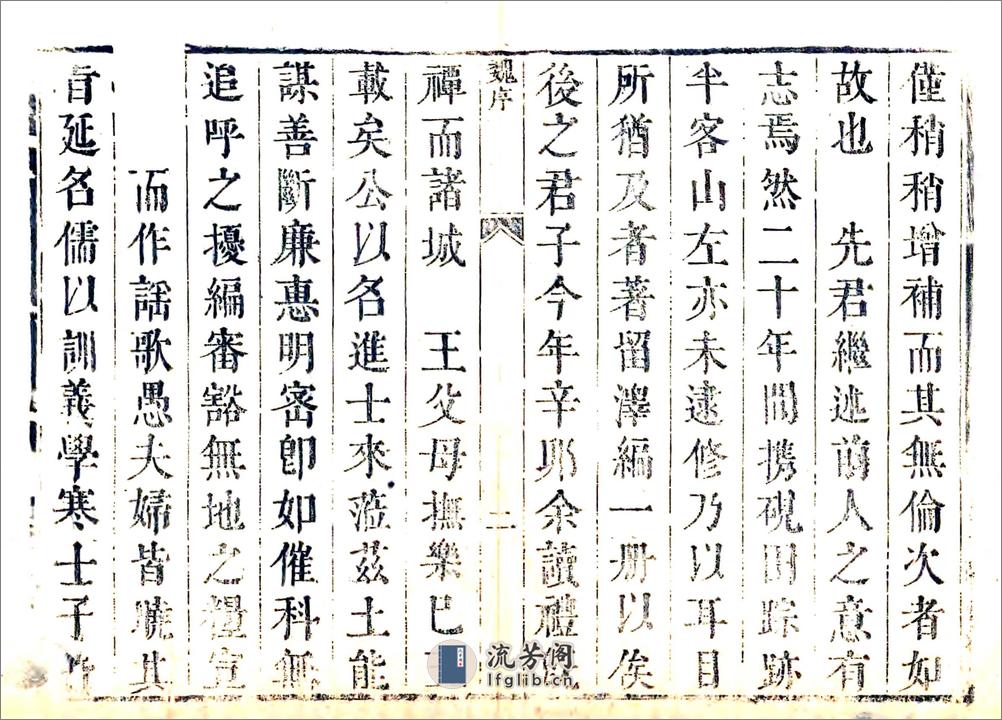 僅稍稍增補而其無倫次者如
故也　先君繼述前人之意有
志焉然二十年間携硯田踪跡
半客山左亦未逮修乃以耳目
所猶及者著留澤編一册以俟
後之君子今年辛耶余讀禮
魏序
二
禫而諸城　王父母撫樂已
載矣公以名進士來蒞茲土能
謀善斷廉惠明密卽如催科無
追呼之擾編審豁無地之糧宣
而作謡歌愚夫婦皆曉其
旨延名儒以訓義學寒士子
流芳阁
lfglib.cn